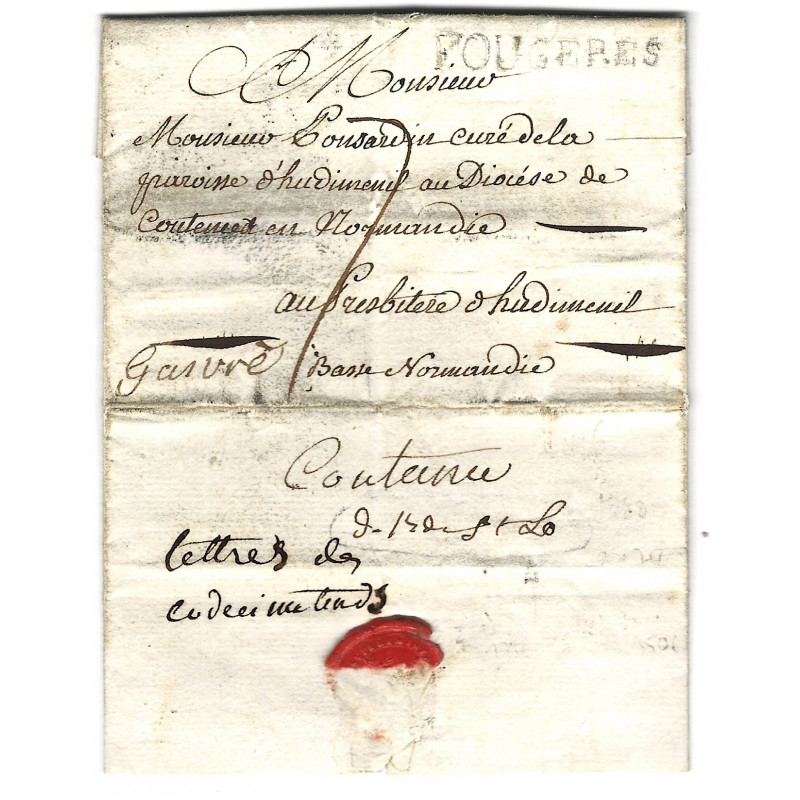 FOUGERES
A Monsieur
Monsieur Ponsardin curé de la
paroisse d'hudimenil au Diocése de
en Normandie
au Presbitere d'hudimenil
Gavré Basse Normandie
7
Coutance
St Lo
lettres de